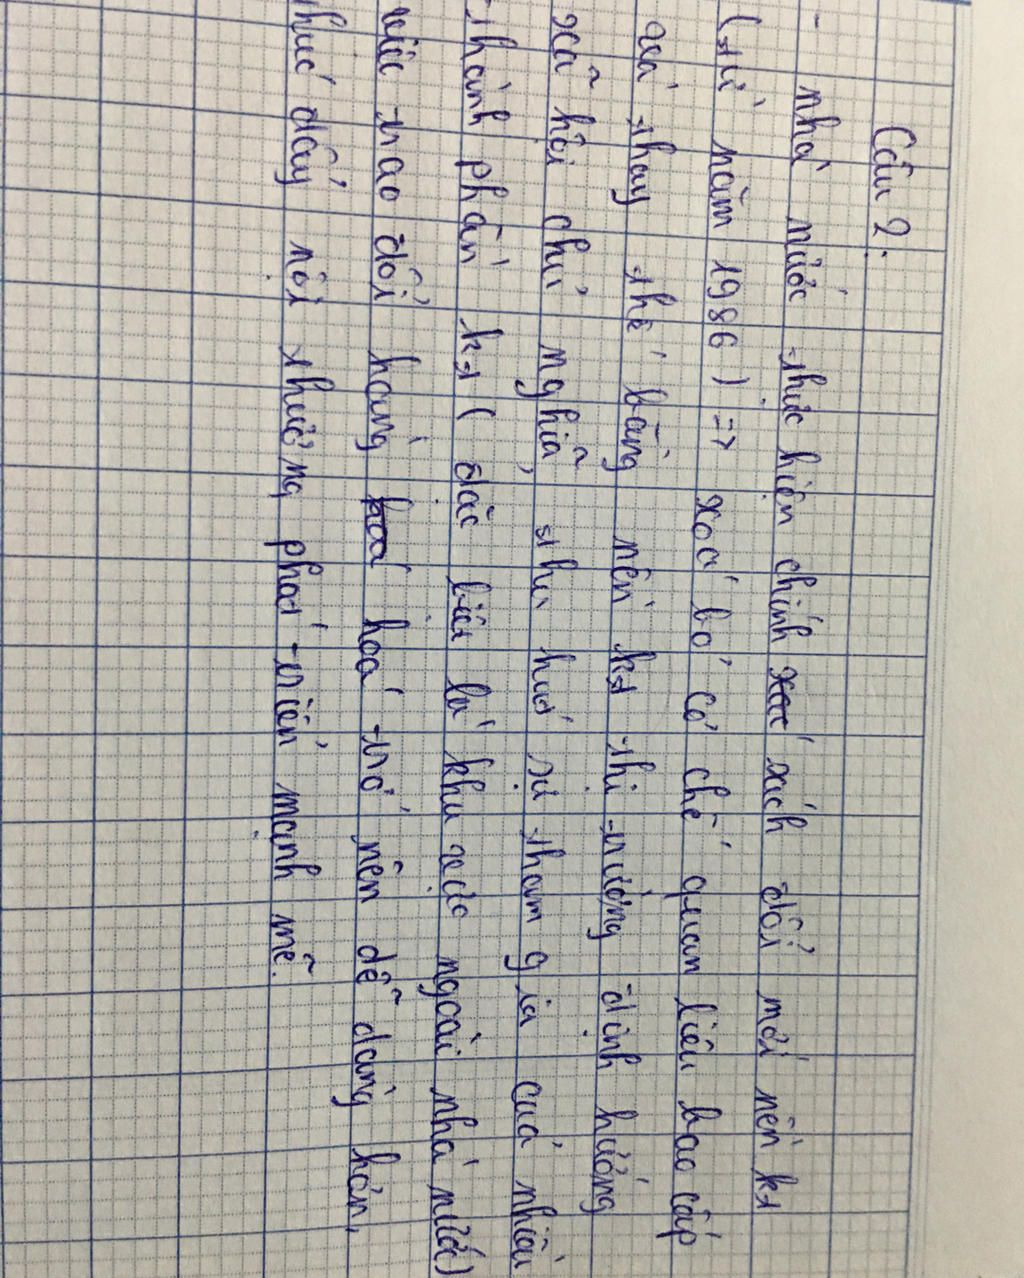 Câu 2:
- nhà nước thực hiện chính xách đổi mới nền kt
(từ năm 1986) => xoá bỏ cơ chế quan liêu bao cấp
và thay thế bằng nền kt thị trường định hướng
xã hội chủ nghĩa, thu hút sự tham gia của nhiều
thành phần kt (đặc biệt là khu vực ngoài nhà nước)
việc trao đổi hàng hoá trở nên dễ dàng hơn,
thúc đẩy nội thương phát triển mạnh mẽ.